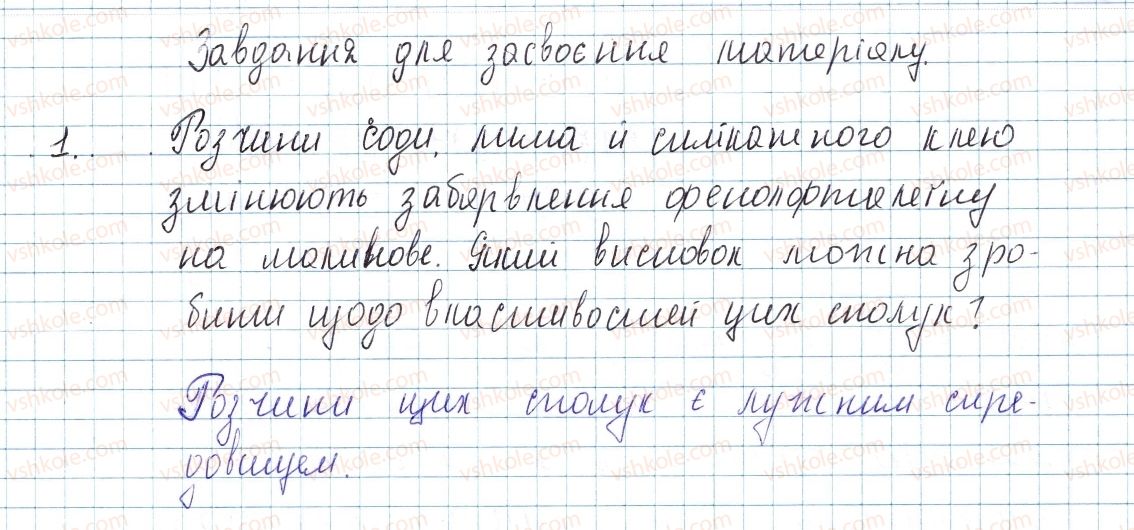 Завдання для засвоєння матеріалу.
1. Розчини соди, мила й силікатного клею
змінюють забарвлення фенолфталеїну
на малинове. Який висновок можна зро-
бити щодо властивостей цих сполук?
Розчини цих сполук є лужним сере-
довищем.